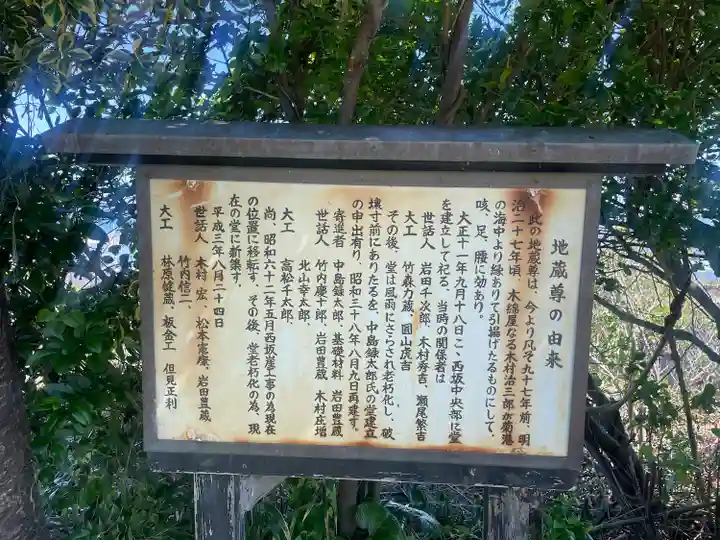 地蔵尊の由来
此の地蔵尊は、今より凡そ九十七年前、明
治二十七年頃、木綿屋なる木村治三郎が菊港
の海中より縁ありて引揚げたるものにして
咳、足、腰に効あり。
大正十一年九月十八日こゝ西坂中央部に堂
を建立して祀る。当時の関係者は
世話人 岩田千次郎、木村寿吉、瀬尾繁吉
大工 竹森力蔵、圓山虎吉
その後、堂は風雨にさらされ老朽化し、破
壊寸前にありたるを、中島録太郎氏の堂建立
の申出有り、昭和三十八年八月九日再建す。
寄進者 中島録太郎、基礎材料 岩田豊蔵
世話人 竹内慶十郎、岩田豊蔵 木村庄増
大工 高松千太郎、
北山幸太郎、
尚、昭和六十二年五月西坂崖工事の為現在
の位置に移転す、その後、堂老朽化の為、現
在の堂に新築す。
平成三年八月二十四日
世話人 木村 宏、松本憲康、岩田豊蔵
竹内信二、
大工 林原健蔵、板金工 但見正利